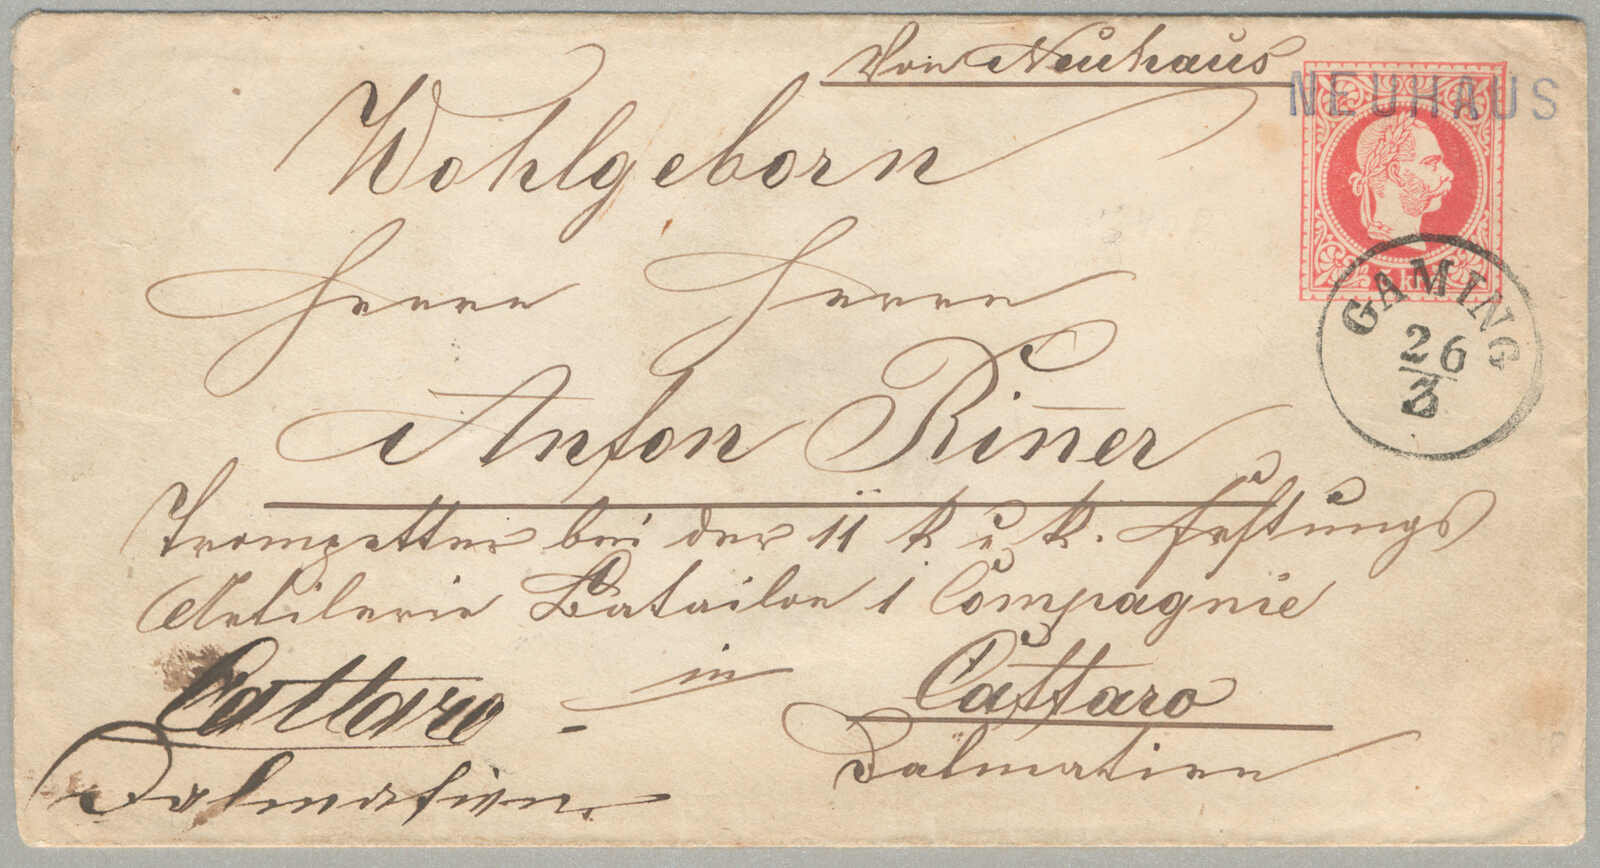 Von Neuhaus
NEUHAUS
Wohlgeborn
Herrn Herrn
GAMING
26
3
Anton Rin̅er
Trompetter bei der 11 k u. k. Festungs
Artilerie Batailon 1 Compagnie
in Cattaro
Dalmatien
Cattaro
Dalmatien